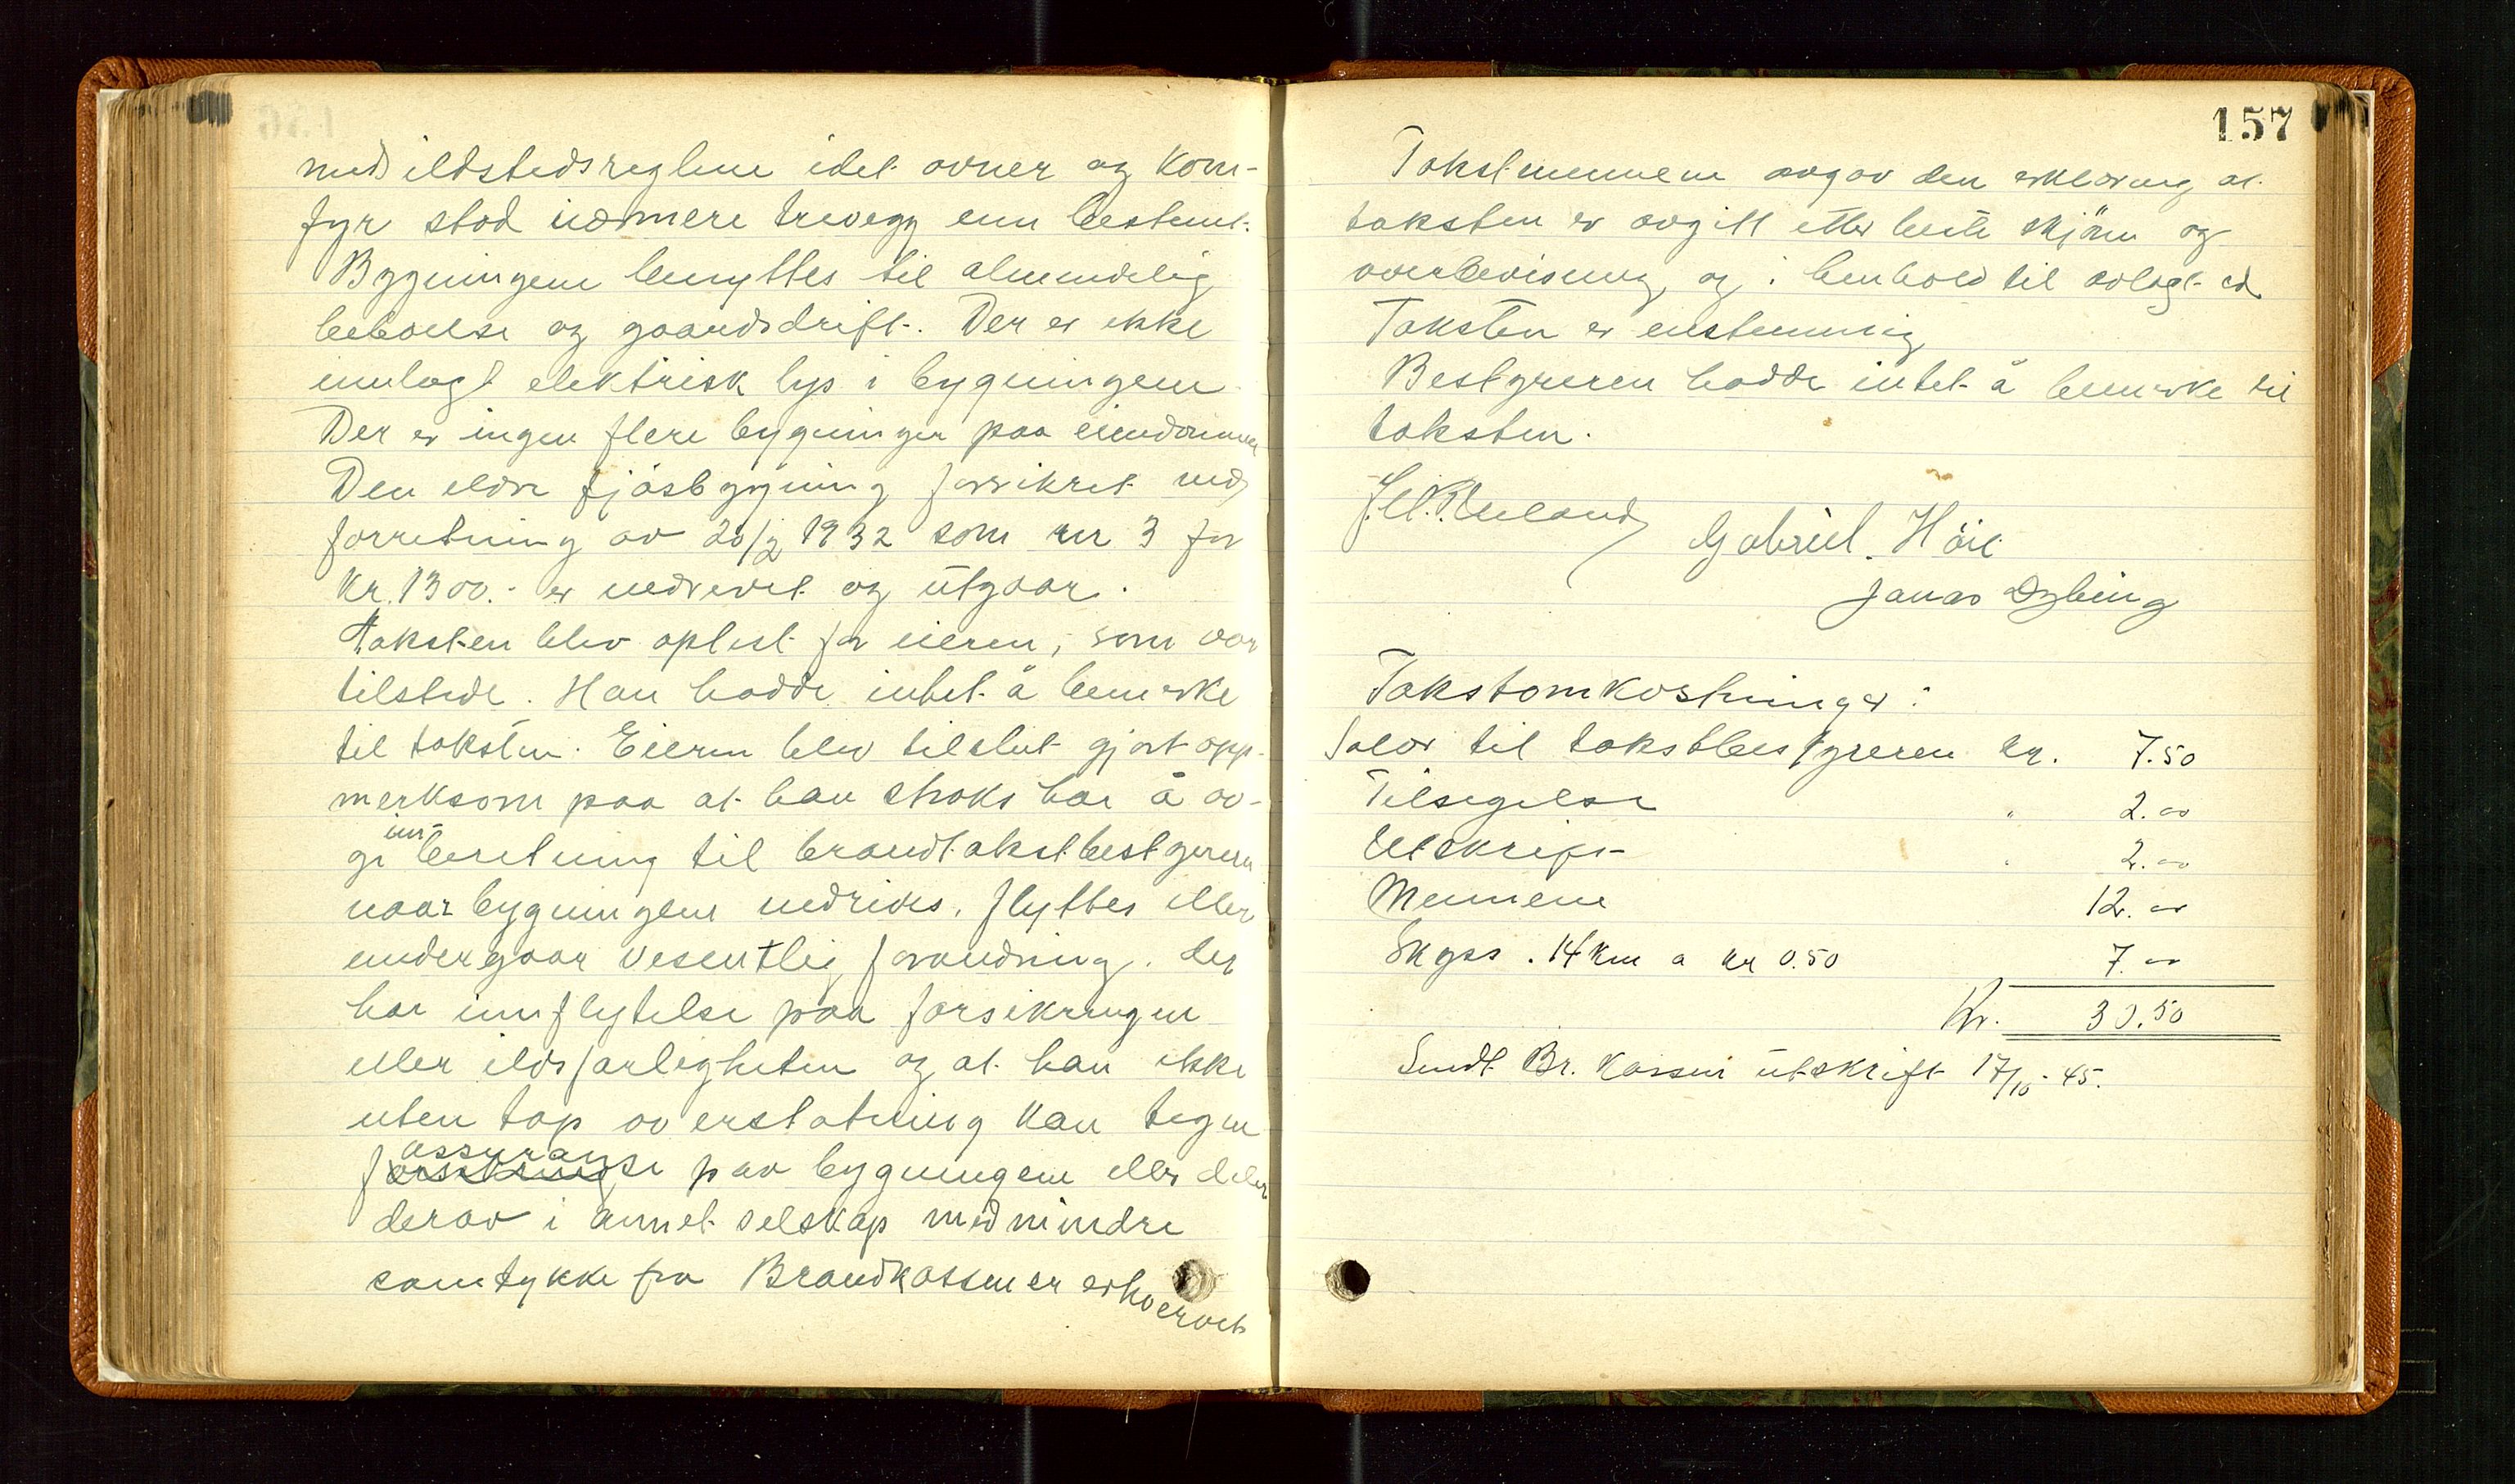 med ildstedsreglene idet ovner og kom-
fyr stod nærmere trevegg enn bestemt.
Bygningene benyttes til almindelig
beboelse og gaardsdrift. Der er ikke
innlagt elektrisk lys i bygningene
Der er ingen flere bygninger paa eiendommen
Den eldre fjösbygning forsikret ved
forretning av 20/2 1932 som nr 3 for
kr. 1300.- er nedrevet og utgaar.
Taksten blev oplest for eieren, som var
tilstede. Han hadde intet å bemerke
til taksten. Eieren blev tilslut gjort opp-
merksom paa at han straks har å av-
gi inn-beretning til brandtakstbestyreren
naar bygningene nedrives, flyttes eller
undergaar vesentlig forandring, der
har innflytelse paa forsikringen
eller ildsfarligheten og at han ikke
uten tap av erstatning kan tegne
assuranse paa bygningene eller deler
derav i annet selskap med mindre
samtykke fra Brandkassen er erhvervet
157
Takstmennene avgav den erklæring at
taksten er avgitt etter beste skjönn og
overbevisning og i henhold til avlagt ed
Taksten er enstemmig
Bestyreren hadde intet å bemerke til
taksten.
Gabriel Höie
Jonas Dybing
Takstomkostninger:
Salær til takstbestyreren kr. 7.50
Tilsigelse " 2.00
Utskrift " 2.00
Mennene 12.00
Skyss. 14 km a kr 0.50 7.00
Kr. 30.50
Sendt Br. Kassen utskrift 17/10-45.